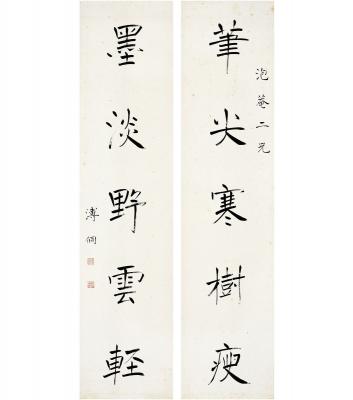 泡菴二兄
筆尖寒樹瘦
墨淡野雲軽
溥侗